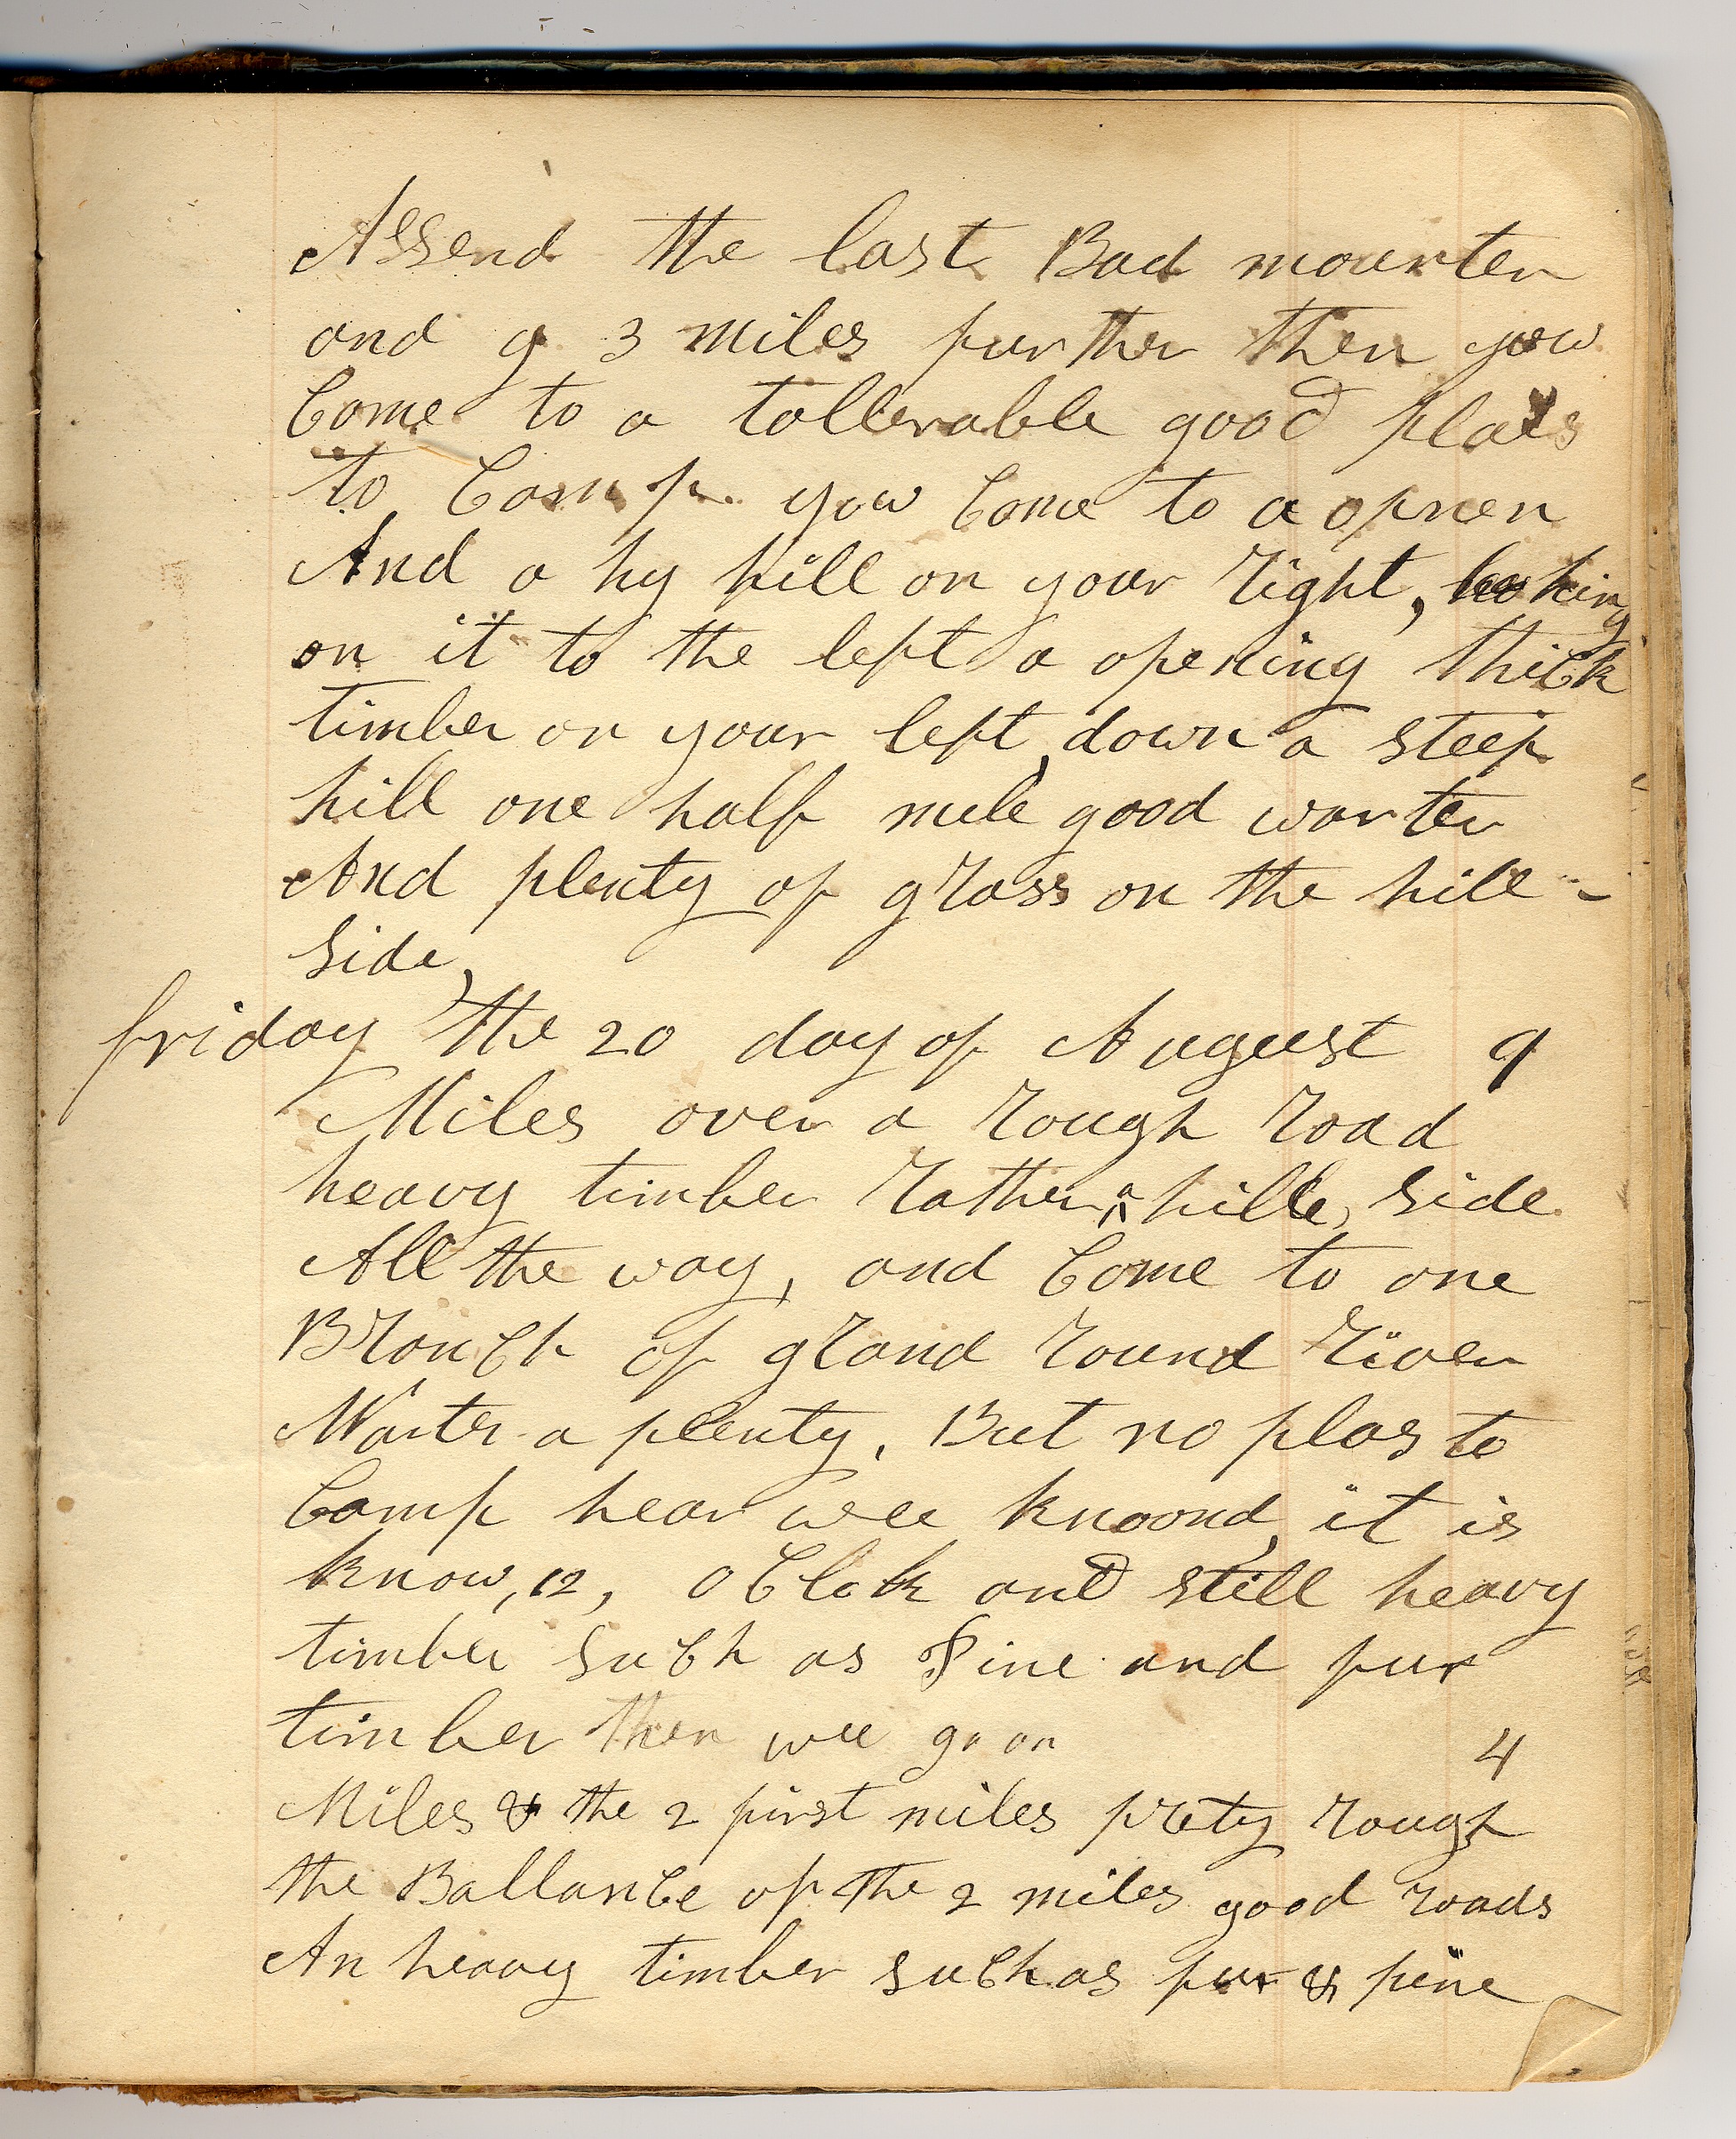 Assend the last Bad mounten
and g 3 miles further then yow
Come to a tollerable good plais
to Camp yow Come to a opnen
And a hy hill on your right, looking
on it to the left a opening thick
timber on your left, down a steep
hill one half mile good warter
And plenty of grass on the hill -
side,
friday the 20 day of August 9
Miles over a rough road
heavy timber rather a hille, side
All the way, and Come to one
Branch of grand round river
Warter a plenty, But no plas to
Camp hear wee knoond, it is
know, 12, oClok and still heavy
timber such as Pine and fur
timber then wee go on 4
Miles & the 2 first miles prety rough
the Ballance of the 2 miles good roads
An heavy timber such as fur & pine